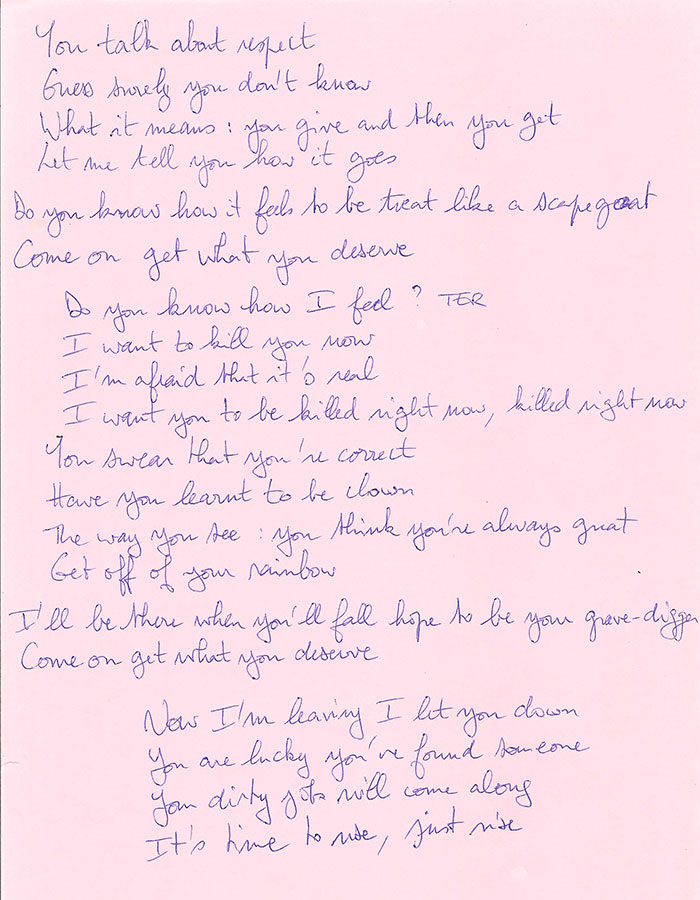 You talk about respect
Guess surely you don't know
What it means : you give and then you get
Let me tell you how it goes
Do you know how it feels to be treat like a scapegoat
Come on get what you deserve
Do you know how I feel ? TER
I want to kill you now
I'm afraid that it's real
I want you to be killed right now, killed right now
You swear that you're correct
Have you learnt to be clown
The way you see : you think you're always great
Get off of your rainbow
I'll be there when you'll fall hope to be your grave-digger
Come on get what you deserve
Now I'm leaving I let you down
You are lucky you've found someone
Your dirty jobs will come along
It's time to rise, just rise